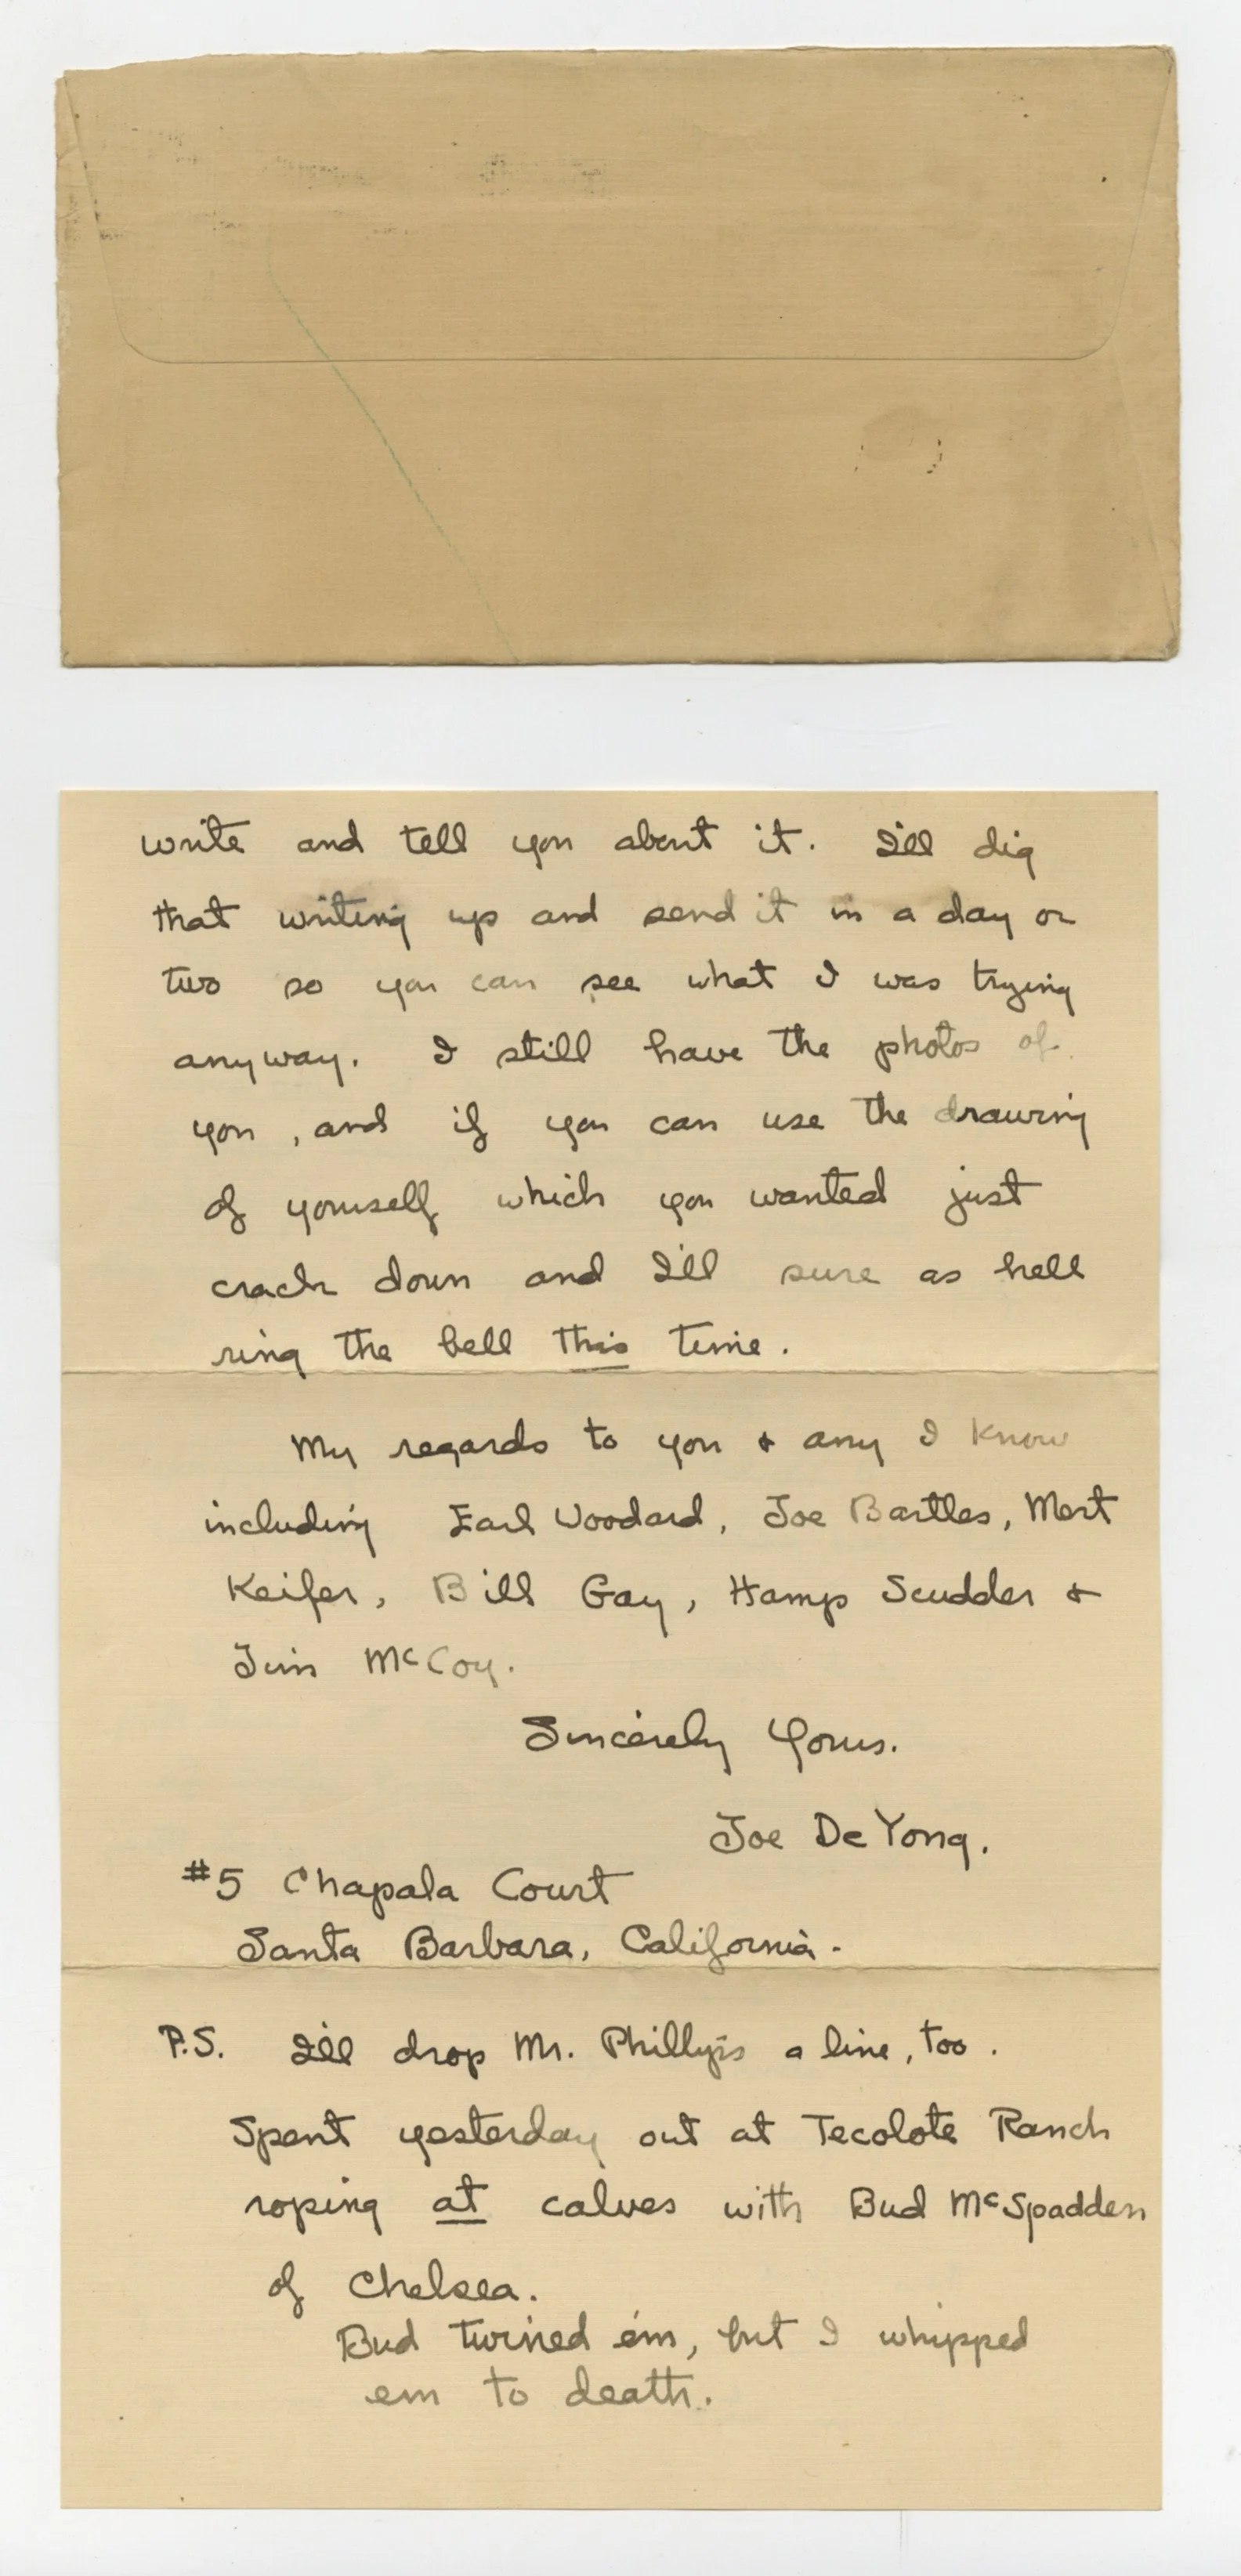 write and tell you about it. I'll dig
that writing up and send it in a day or
two so you can see what I was trying
anyway. I still have the photos of
you, and if you can use the drawing
of yourself which you wanted just
crack down and I'll sure as hell
ring the bell this time.
My regards to you & any I know
including Earl Woodard, Joe Bartles, Mert
Keifer, Bill Gay, Hamp Scudder &
Jim McCoy.
Sincerely Yours.
Joe De Yong.
#5 Chapala Court
Santa Barbara, California.
P.S. I'll drop Mr. Phillyps a line, too.
Spent yesterday out at Tecolote Ranch
roping at calves with Bud McSpadden
of Chelsea.
Bud turned em, but I whipped
em to death.